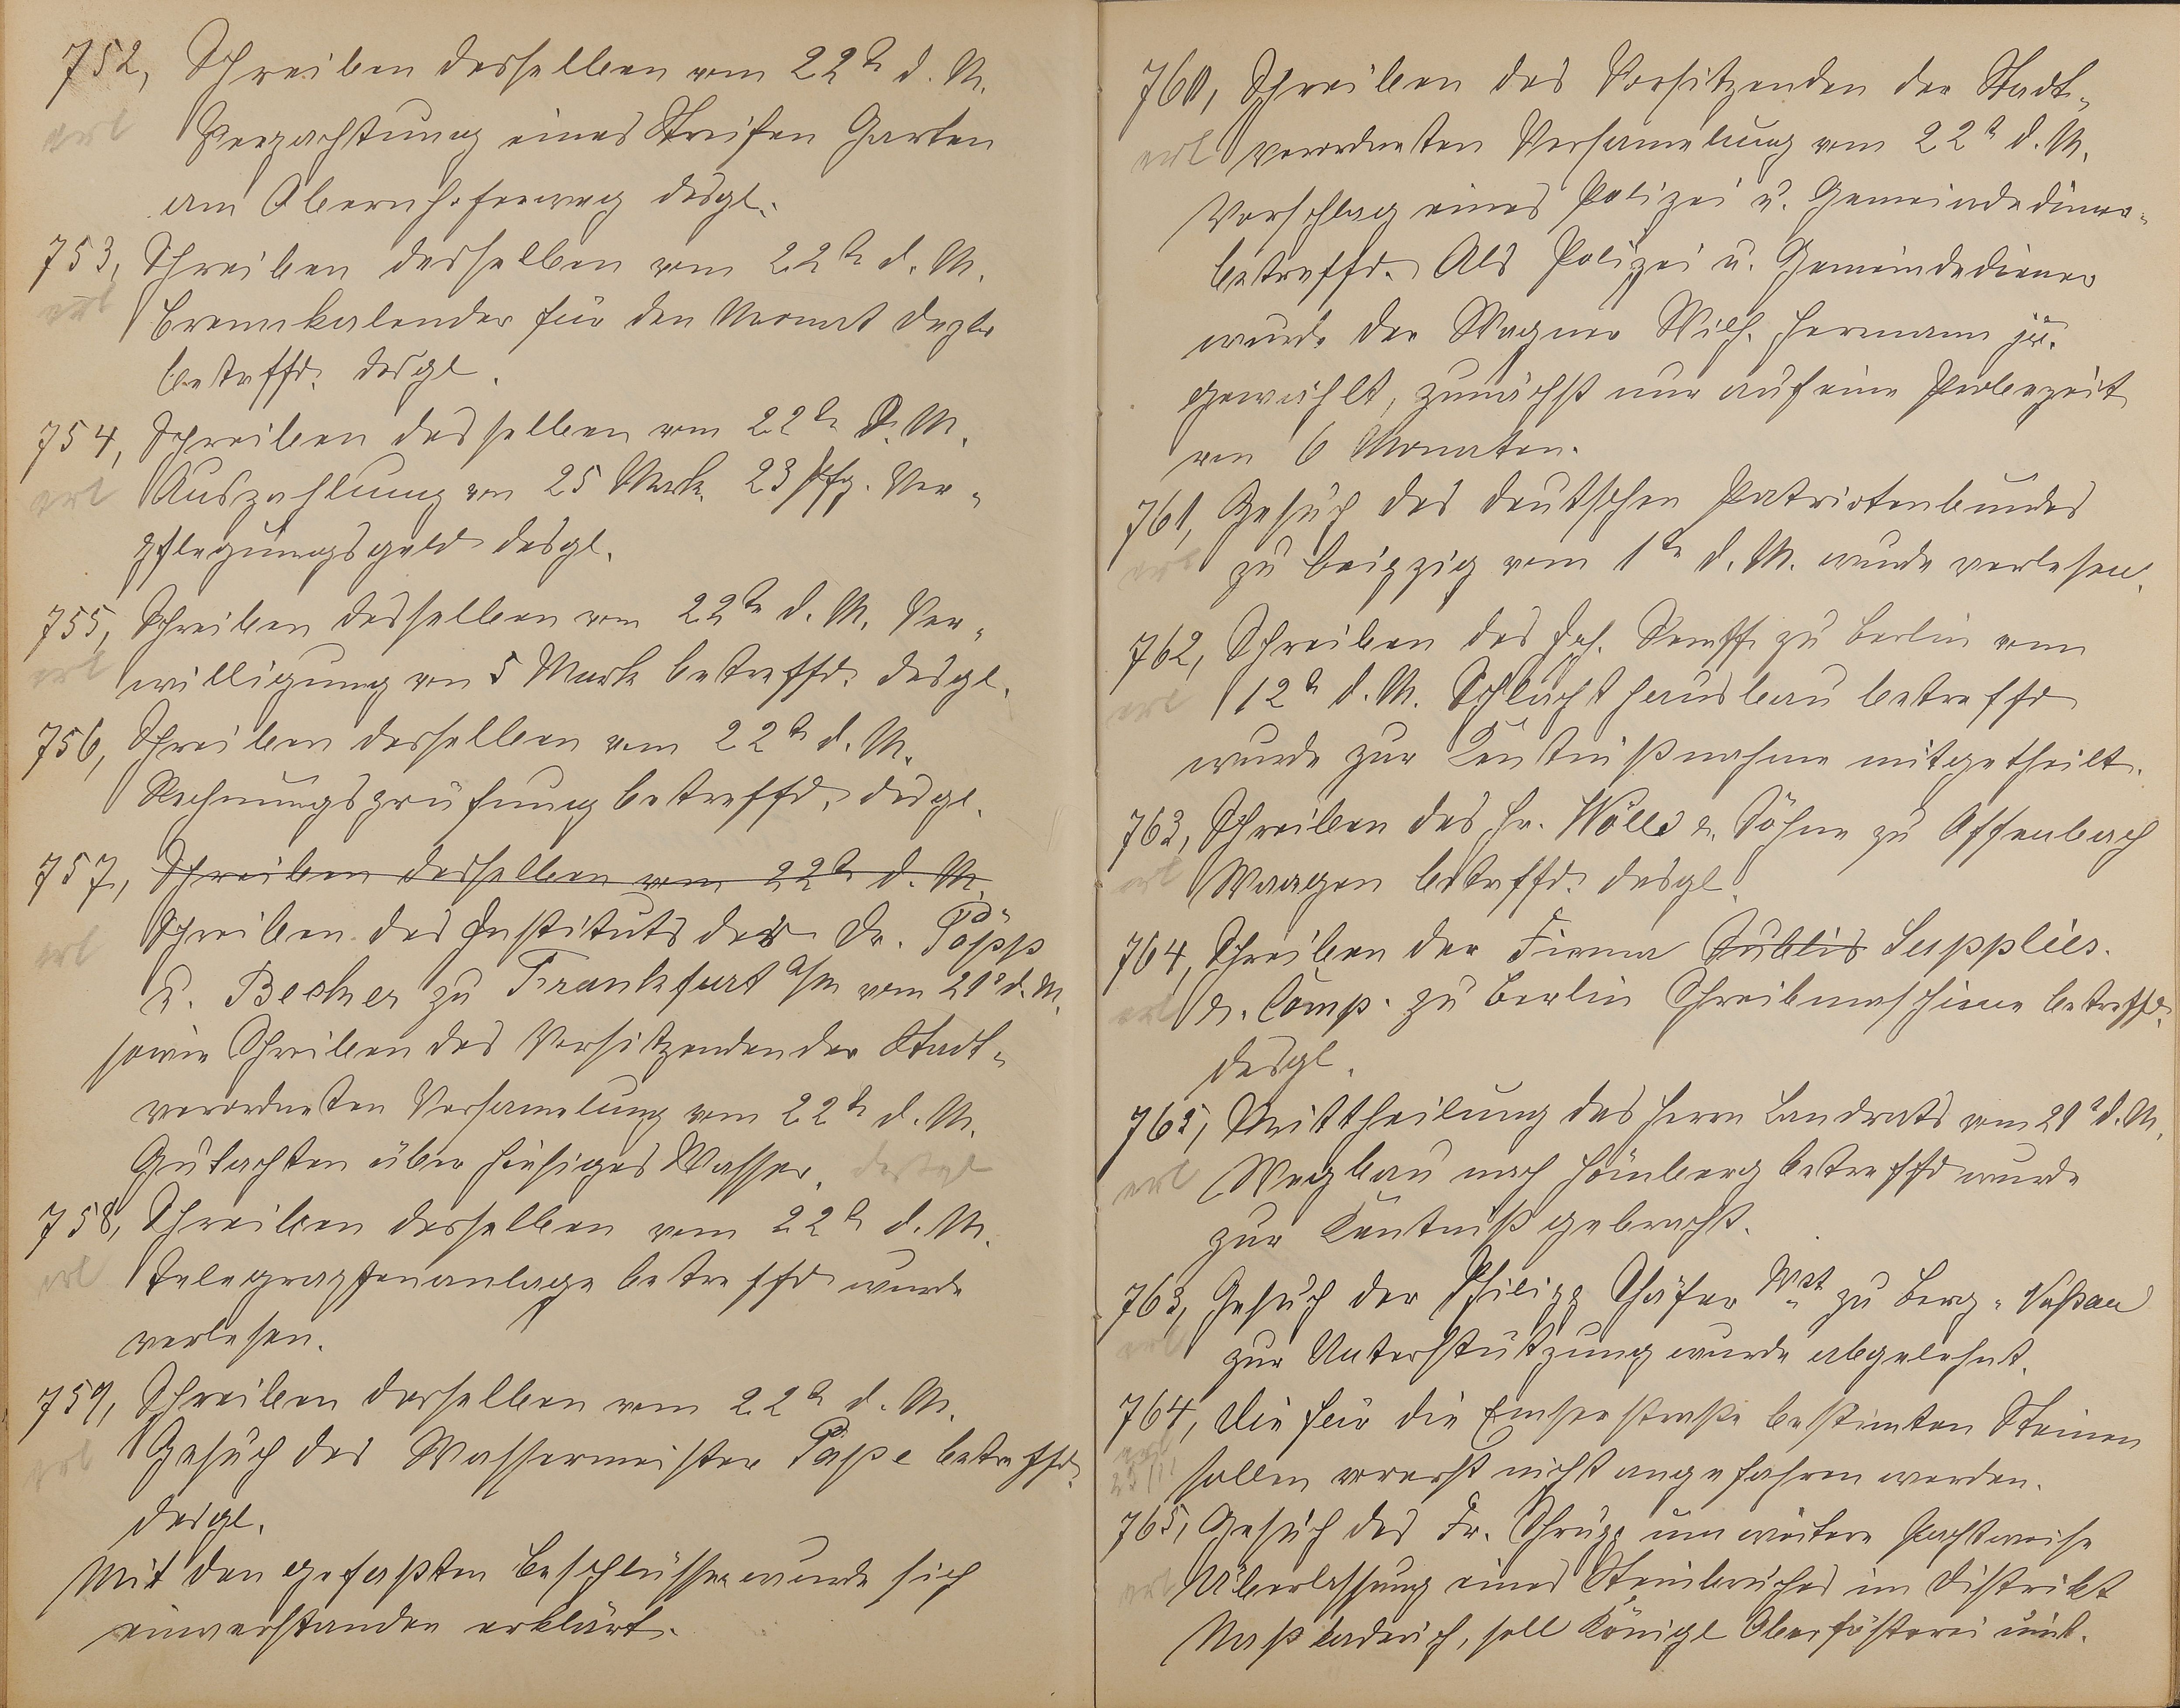 752, Schreiben desselben vom 22t d. M.
erl Verpachtung eines Streifen Garten
am Obernhoferweg desgl.
753, Schreiben desselben vom 22t d. M.
erl Brennkalender für den Monat Dezbr
betreffd. desgl.
754, Schreiben desselben vom 22t d. M.
erl Auszahlung von 25 Mark 23 Pfg. Ver-
pflegungsgeld desgl.
755, Schreiben desselben vom 22t d. M. Ver-
erl willigung von 5 Mark betreffd. desgl.
756, Schreiben desselben vom 22t d. M.
Rechnungsprüfung betreffd. desgl.
757, Schreiben desselben vom 22t d. M.
erl Schreiben des Instituts der Dr. Popp
u. Becker zu Frankfurt a/m vom 21t d. M.
sowie Schreiben des Vorsitzenden der Stadt-
verordneten Versamelung vom 22t d. M.
Gutachten über hiesiges Wasser. desgl
758, Schreiben desselben vom 22t d. M.
erl Telegraphenanlage betreffd wurde
verlesen.
759, Schreiben desselben vom 22t d. M.
erl Gesuch des Wassermeister Pape betreffd.
desgl.
Mit den gefaßten Beschlüssen wurde sich
einverstanden erklärt.
760, Schreiben des Vorsitzenden der Stadt-
erl verordneten Versamelung vom 22t d. M.
Vorschlag eines Polizei u. Gemeindediener-
betreffd. Als Polizei u. Gemeindediener
wurde der Wagner Wilh. Hermann jr.
gewählt, zunächst nur auf eine Probezeit
von 6 Monaten.
761, Gesuch des deutschen Patriotenbundes
erl zu Leipzig vom 1t d. M. wurde verlesen.
762, Schreiben des Joh. Senff zu Berlin vom
erl 12t d. M. Schlachthausbau betreffd
wurde zur Kentnißnahme mitgetheilt.
763, Schreiben des Hr. Wölls u. Söhne zu Offenbach
erl Waagen betreffd. desgl.
764, Schreiben der Firma Sublis Supplies.
erl u. Comp. zu Berlin Schreibmaschine betreffd.
desgl.
765, Mittheilung des Herrn Landrats vom 21t d. M.
erl Wegbau nach Hömberg betreffd wurde
zur Kentniß gebracht.
763, Gesuch der Philipp Schäfer Wwe zu Berg-Naßau
erl zur Unterstützung wurde abgelehnt.
764, Die für die Emserstraße bestimten Steinen
erl 25/11 sollen vorerst nicht angefahren werden.
765, Gesuch des Fr. Schrupp um weitere pachtweise
erl Überlassung eines Steinbruches im Distrikt
Naßladerich, soll Königl Oberförsterei mit-